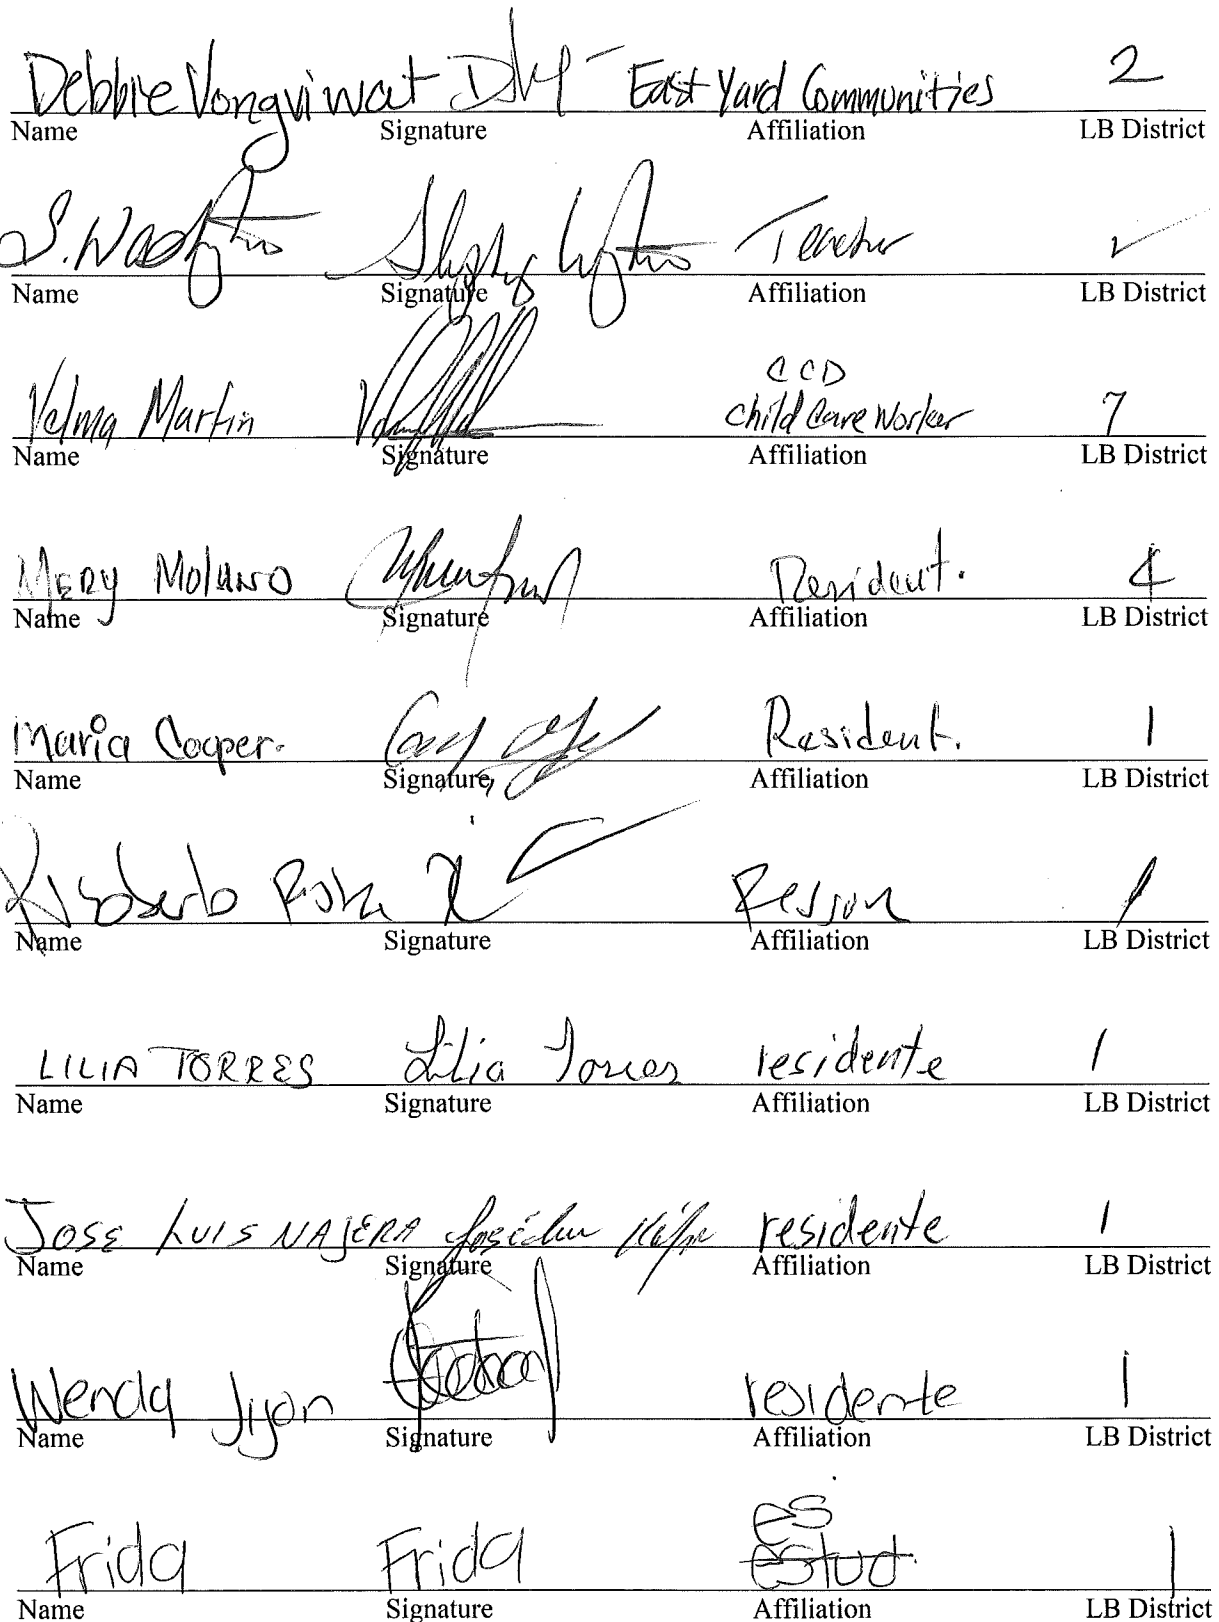 Debbie Vongviwat East Yard Communities 2
Name Signature Affiliation LB District
S. Teacher
Name Signature Affiliation LB District
CCD
Velma Martin child care worker 7
Name Signature Affiliation LB District
MERY MOLANO Resident. 4
Name Signature Affiliation LB District
Maria Cooper. Resident. 1
Name Signature Affiliation LB District
1
Name Signature Affiliation LB District
LILIA TORRES Lilia Torres residente 1
Name Signature Affiliation LB District
JOSE LUIS NAJERA residente 1
Name Signature Affiliation LB District
Wendy Jijon residente 1
Name Signature Affiliation LB District
es
Frida Frida estud. 1
Name Signature Affiliation LB District